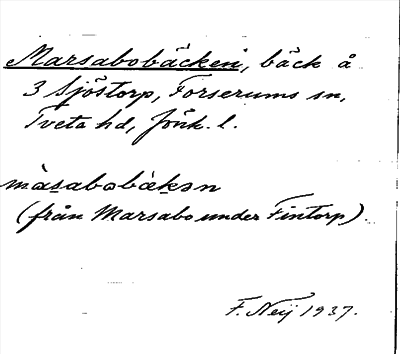 Marsabobäcken, bäck å
3 Sjöstorp, Forserums sn,
Tveta hd, Jönk. l.
màs̱abobèḵən
(från Marsabo under Fintorp).
F. Neij 1937.